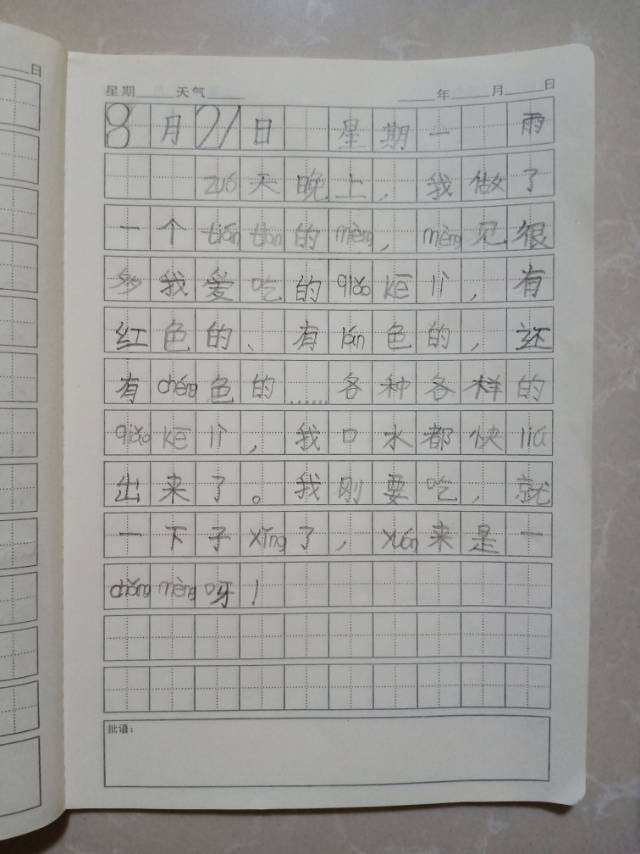 日
星期 天气 年 月 日
8月21日 星期一 雨
zuó天晚上，我做了
一个tián tián的mèng，mèng见很
多我爱吃的qiǎo kē lì，有
红色的、有lán色的，还
有chéng色的……各种各样的
qiǎo kē lì，我口水都快liú
出来了。我刚要吃，就
一下子xǐng了，yuán来是一
chǎng mèng呀！
批语：